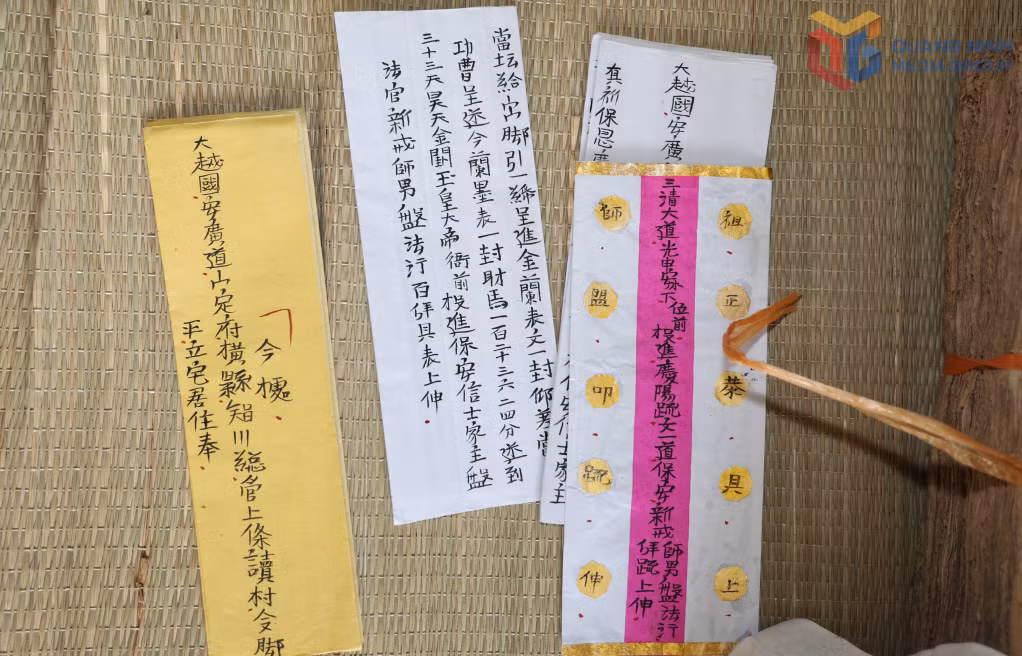 今據
大越國安廣道山定府橫縣知川總管上條讀村令脚
平立宅居住奉
當坛給出脚引一呈進金蘭表文一封仰差當
功曹呈遞今蘭墨表一封財馬一百二十三六二四分遞到
三十三天昊天金闕玉皇大帝衙前投進保安信士家主盤
法官新戒師男盤法行百拜具表上伸
大越國安廣
祈保恩
士家主
祖正恭具上
三清大道光下位前投進慶陽疏文一道保安新戒師男盤法行
拜疏上伸
師盟叩疏伸
QUANG NINH
MEDIA GROUP